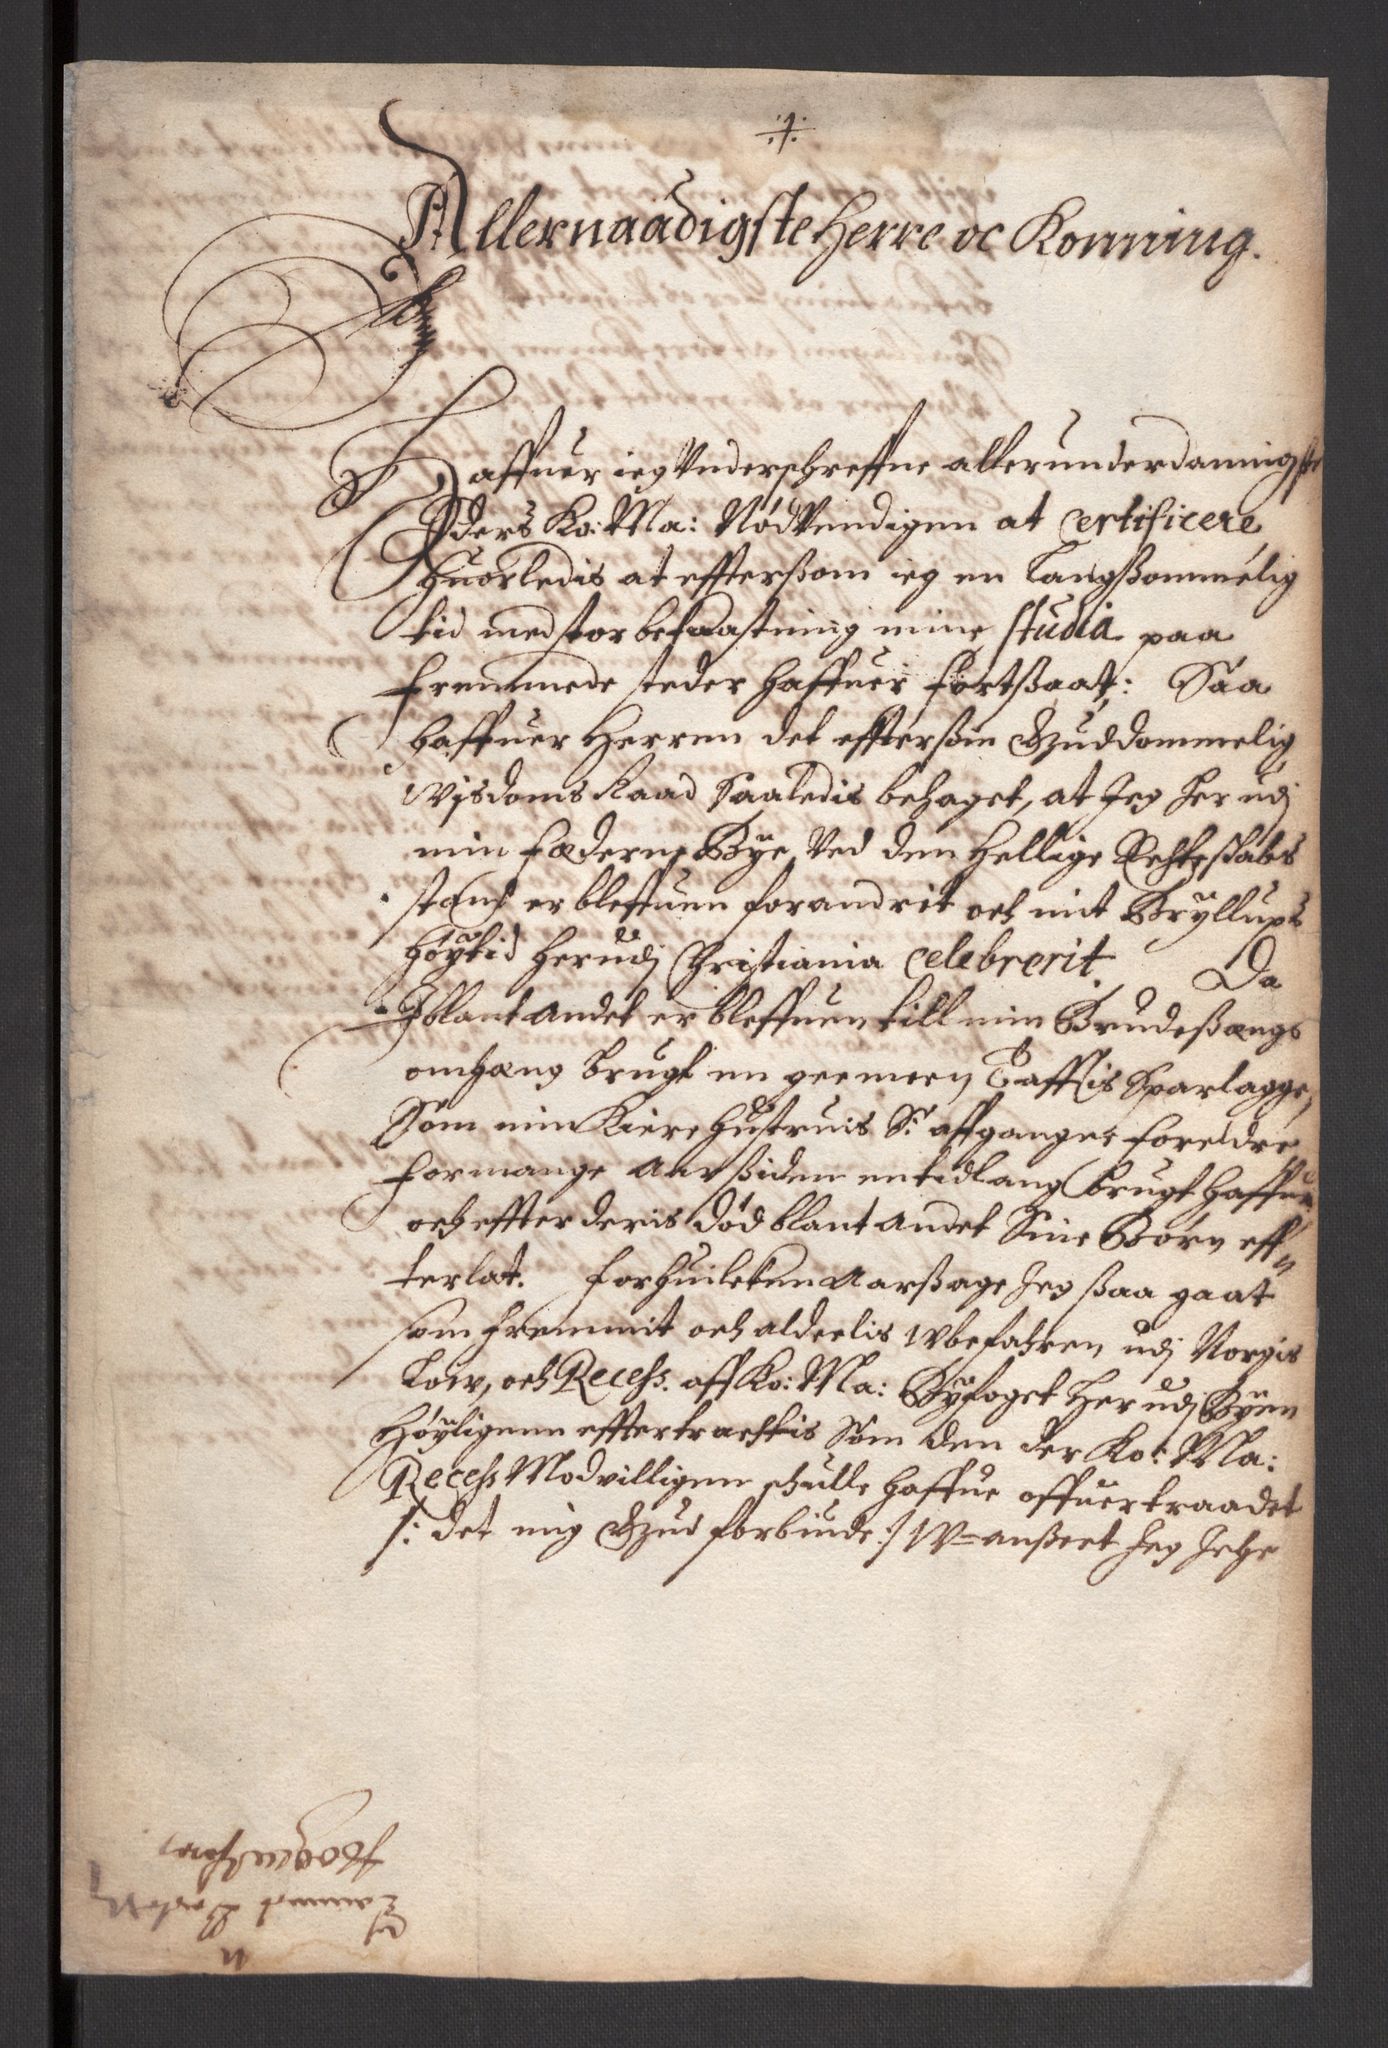 Allernaadigste Herre oc Konning.
Haffuer ieg Underschreffne allerunderdannigste
Eders Ko: Ma: Nødvendigen at certificere
Huorledis at effterßom ieg en Langßommelig
tid med stor bekaastning mine studia paa
fremmede steder haffuer fortßaat: Saa
haffuer Herren det effterßin Guddommelig
Wisdoms Raad Saaledis behaget, at Jeg her udj
min fæderne Bÿe Ved den Hellige Echteskabs
stand er bleffuen forandrit och mit Brÿllups
Høÿtid herudj Christiania celebrerit. Da
Iblant Andet er bleffuen till min Brudeßængs
omhæng brugt en gemeen Tafftis Sparlagge,
Som min Kiere Hustruis S: affgangne foreldre
for mange Aar ßiden en tidlang brugt haffuer
och effter deris død blant Andet Sine Børn eff-
terlat. for huilcken Aarßage Jeg ßaa gaat
som fremmit och aldeelis Wbefahren udj Norgis
Low, och Recess. aff Ko: Ma: Bÿfoget Her udj Bÿen
Høÿligenn effter tracktis Som den der Ko: Ma:
Recess Modvilligen schulle haffue offuertraadet
/: det mig Gud forbiude :/ W=anßeet Jeg Iche